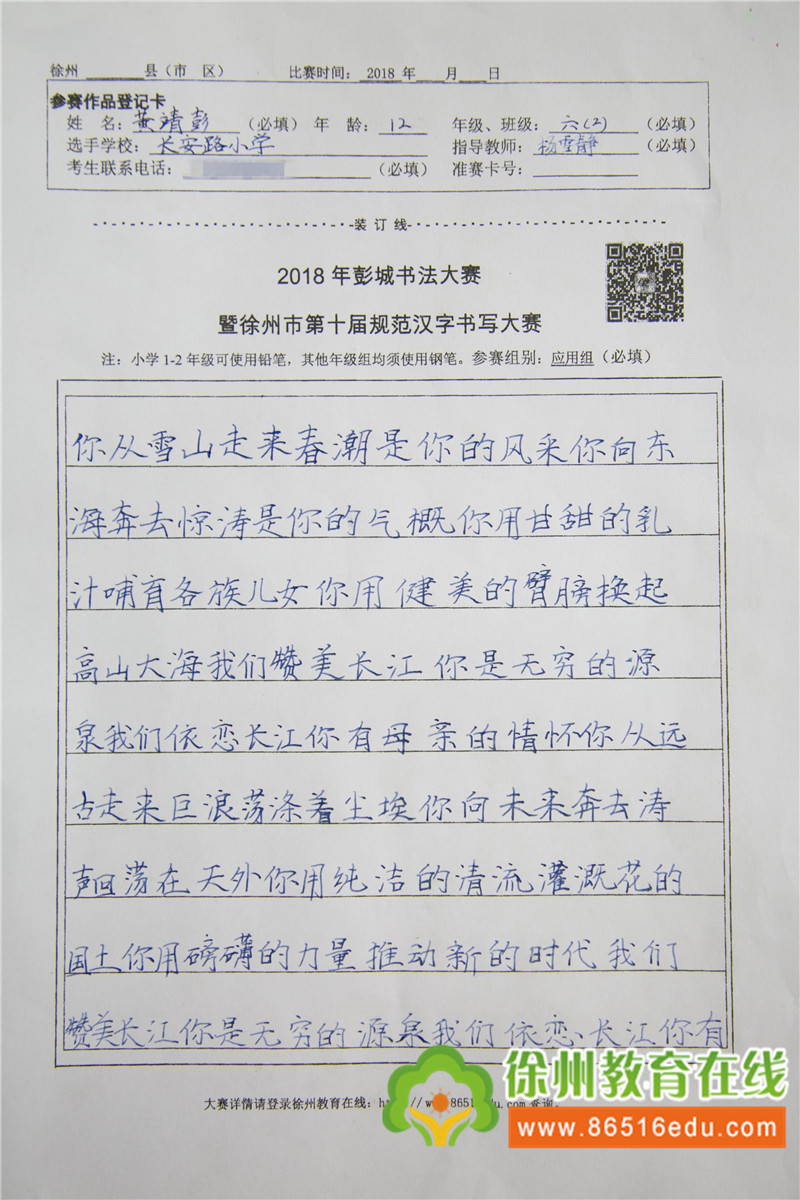 徐州 县（市 区） 比赛时间： 2018 年 月 日
参赛作品登记卡
姓 名：黄靖彭（必填）年 龄：12 年级、班级：六(2)（必填）
选手学校：长安路小学 指导教师：杨雪静（必填）
考生联系电话：（必填）准赛卡号：
装 订 线
2018 年彭城书法大赛
暨徐州市第十届规范汉字书写大赛
注：小学 1-2 年级可使用铅笔，其他年级组均须使用钢笔。参赛组别：应用组（必填）
你从雪山走来春潮是你的风采你向东
海奔去惊涛是你的气概你用甘甜的乳
汁哺育各族儿女你用健美的臂膀换起
高山大海我们赞美长江你是无穷的源
泉我们依恋长江你有母亲的情怀你从远
古走来巨浪荡涤着尘埃你向未来奔去涛
声回荡在天外你用纯洁的清流灌溉花的
国土你用磅礴的力量推动新的时代我们
赞美长江你是无穷的源泉我们依恋、长江你有
大赛详情请登录徐州教育在线：http://www.86516edu.com 查询。
徐州教育在线
www.86516edu.com